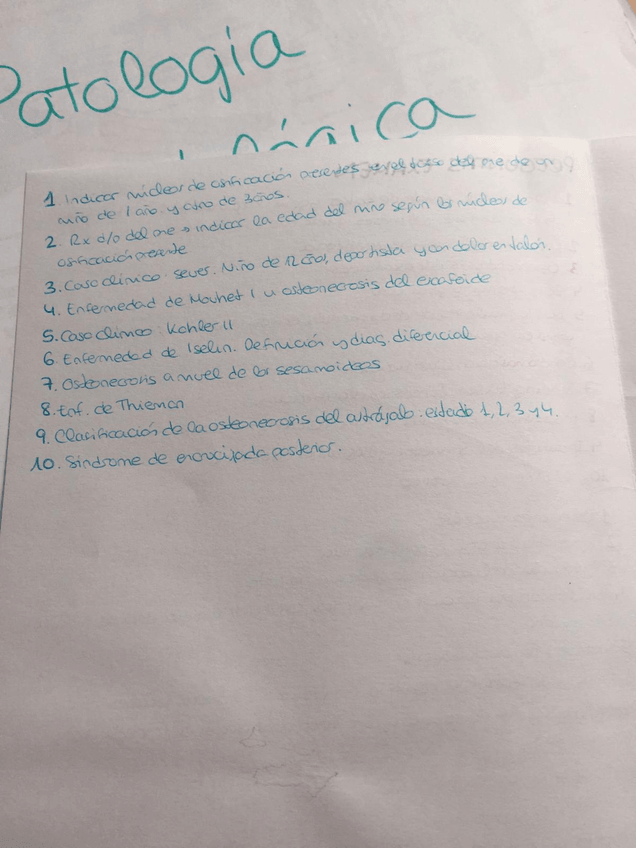 Patología
ánica
1. Indicar núcleos de osificación presentes a nivel óseo del pie de un
niño de 1 año y otro de 3 años.
2. Rx d/o del pie → indicar la edad del niño según los núcleos de
osificación presente
3. Caso clínico: sever. Niño de 12 años, deportista y con dolor en talón.
4. Enfermedad de Mouchet I u osteonecrosis del escafoide
5. Caso clínico: Kohler II
6. Enfermedad de Iselin. Definición y diag. diferencial
7. Osteonecrosis a nivel de los sesamoideos
8. Enf. de Thieman
9. Clasificación de la osteonecrosis del astrágalo: estadio 1, 2, 3 y 4.
10. Síndrome de encrucijada posterior.